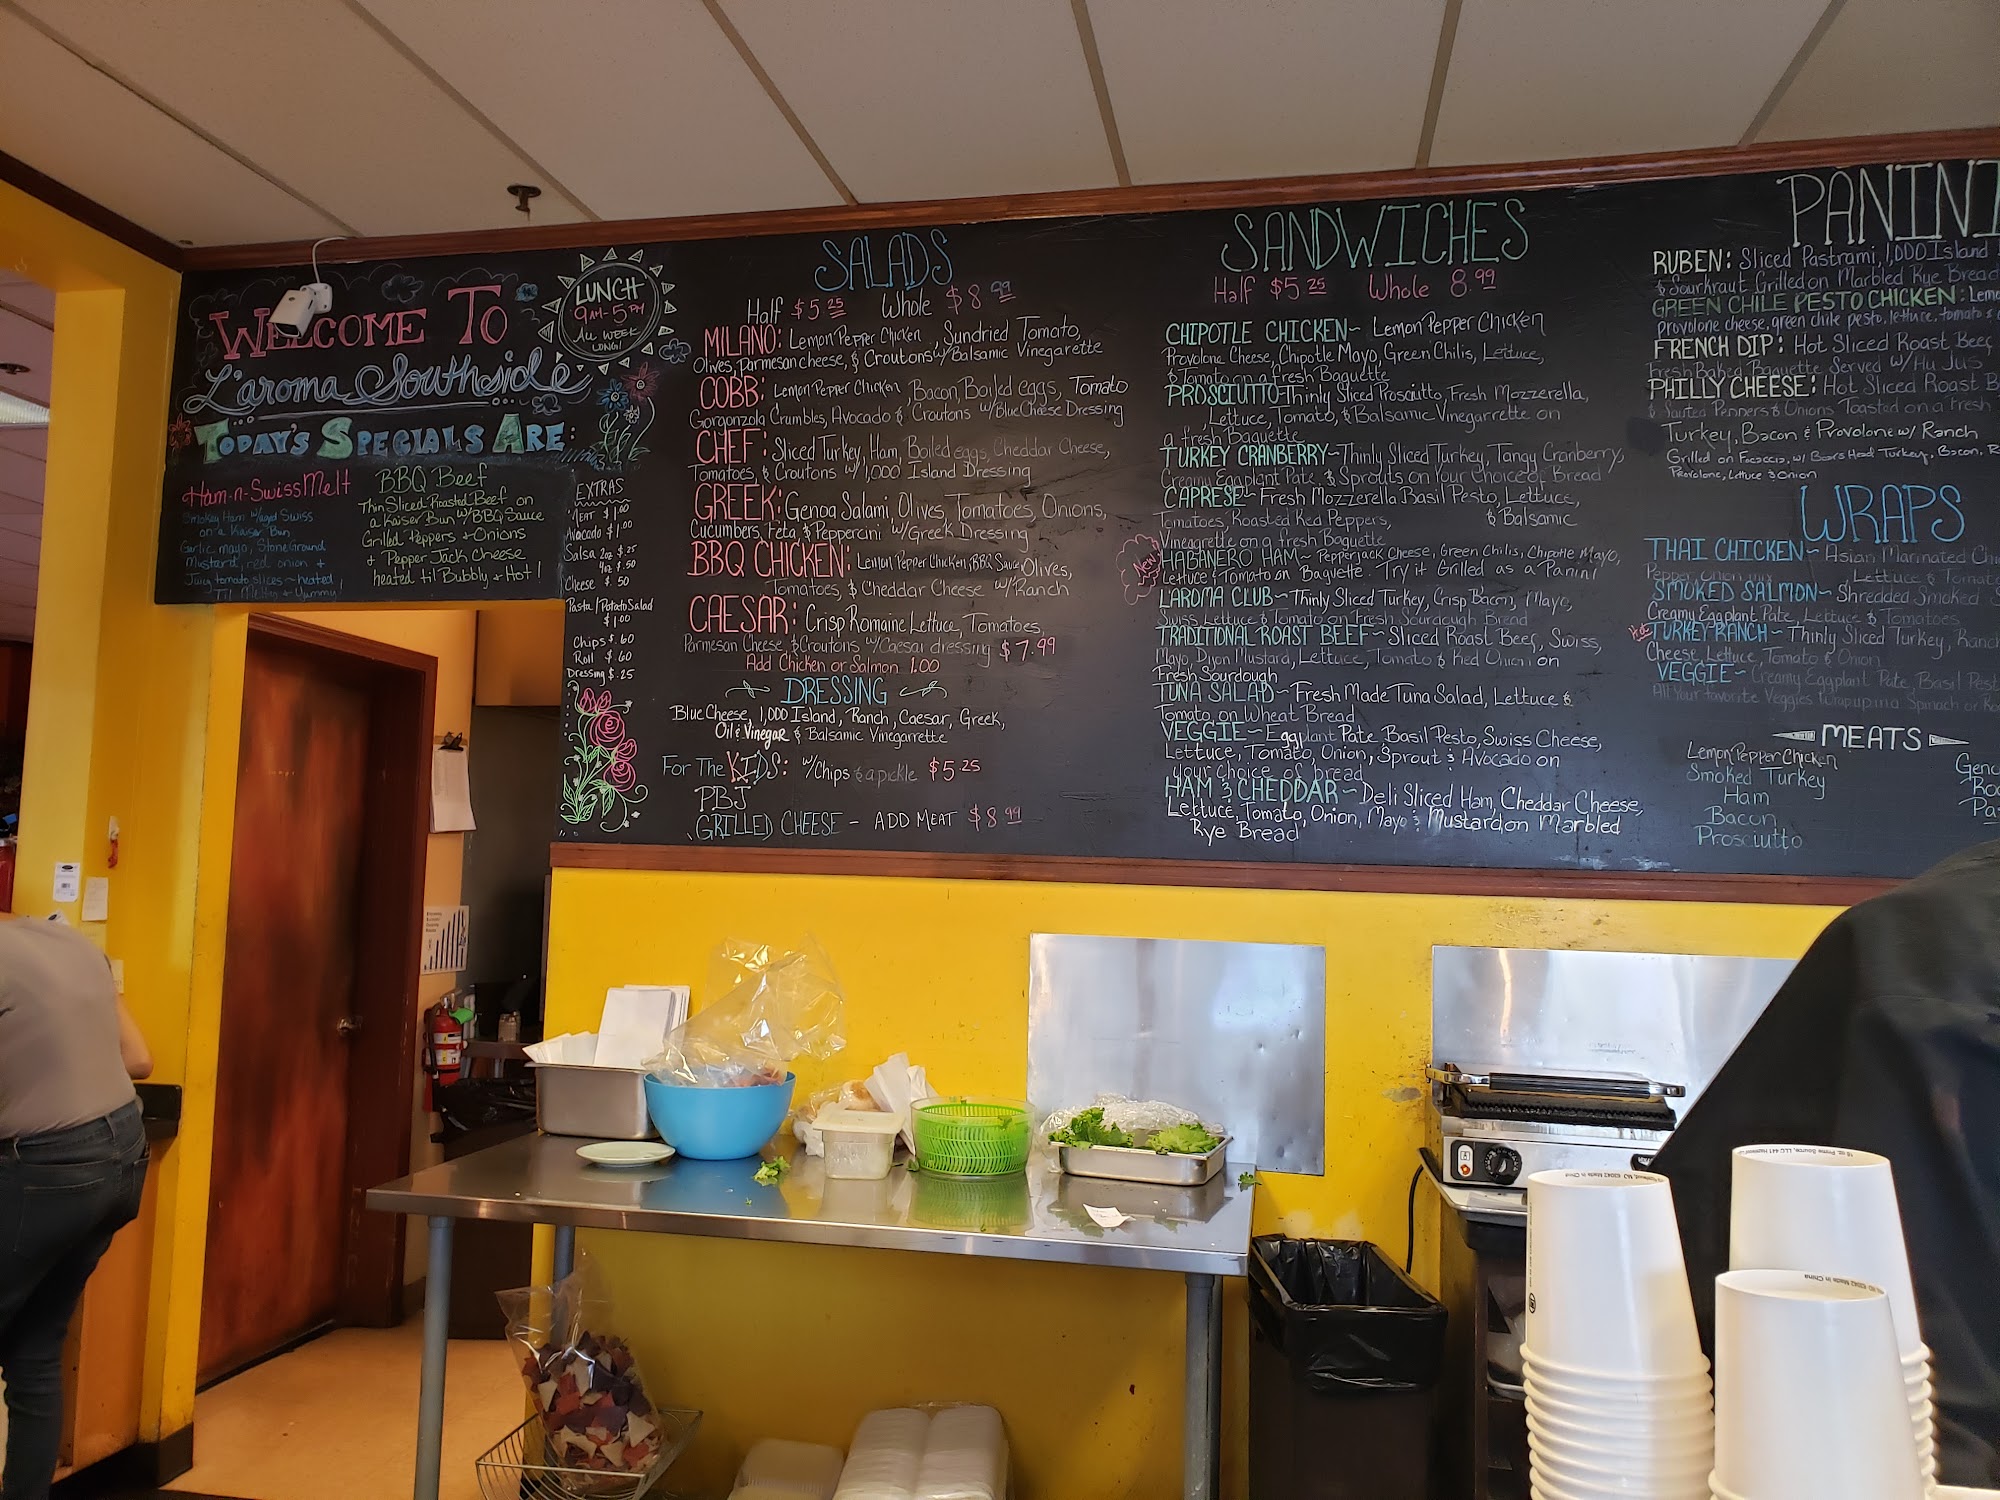 WELCOME TO
L'aroma Southside
TODAY'S SPECIALS ARE:
LUNCH
9AM-5PM
ALL WEEK
LONG!
Ham-n-Swiss Melt
Smokey Ham w/aged Swiss
on a Kaiser Bun
Garlic mayo, Stone Ground
Mustard, red onion +
Juicy tomato slices ~ heated
Til Melty + Yummy!
BBQ Beef
Thin Sliced Roasted Beef on
a Kaiser Bun w/BBQ Sauce
Grilled Peppers + Onions
+ Pepper Jack Cheese
heated til Bubbly + Hot!
EXTRAS
Meat $1.00
Avocado $1.00
Salsa 2oz $.25
4oz $.50
Cheese $.50
Pasta/Potato Salad
$1.00
Chips $.60
Roll $.60
Dressing $.25
SALADS
Half $5.25 Whole $8.99
MILANO: Lemon Pepper Chicken, Sundried Tomato,
Olives, Parmesan cheese, & Croutons w/Balsamic Vinegarette
COBB: Lemon Pepper Chicken, Bacon, Boiled eggs, Tomato
Gorgonzola Crumbles, Avocado & Croutons w/Blue Cheese Dressing
CHEF: Sliced Turkey, Ham, Boiled eggs, Cheddar Cheese,
Tomatoes, & Croutons w/1,000 Island Dressing
GREEK: Genoa Salami, Olives, Tomatoes, Onions,
Cucumbers, Feta, & Peppercini w/Greek Dressing
BBQ CHICKEN: Lemon Pepper Chicken, BBQ Sauce, Olives,
Tomatoes, & Cheddar Cheese w/Ranch
CAESAR: Crisp Romaine Lettuce, Tomatoes,
Parmesan Cheese, & Croutons w/Caesar dressing $7.99
Add Chicken or Salmon 1.00
DRESSING
Blue Cheese, 1,000 Island, Ranch, Caesar, Greek,
Oil & Vinegar & Balsamic Vinegarrette
For The KIDS: w/Chips & a pickle $5.25
PBJ
GRILLED CHEESE - ADD MEAT $8.99
SANDWICHES
Half $5.25 Whole 8.99
CHIPOTLE CHICKEN~ Lemon Pepper Chicken
Provolone Cheese, Chipotle Mayo, Green Chilis, Lettuce,
& Tomato on a fresh Baguette
PROSCIUTTO-Thinly Sliced Prosciutto, Fresh Mozzerella,
Lettuce, Tomato, & Balsamic Vinegarrette on
a fresh Baguette
TURKEY CRANBERRY~Thinly Sliced Turkey, Tangy Cranberry,
Creamy Eggplant Pate, & Sprouts on Your Choice of Bread
CAPRESE~ Fresh Mozzerella Basil Pesto, Lettuce,
Tomatoes, Roasted Red Peppers, & Balsamic
Vineagrette on a fresh Baguette
New!
HABANERO HAM~ Pepperjack Cheese, Green Chilis, Chipotle Mayo,
Lettuce & Tomato on Baguette. Try it Grilled as a Panini
L'AROMA CLUB~Thinly Sliced Turkey, Crisp Bacon, Mayo,
Swiss, Lettuce & Tomato on Fresh Sourdough Bread
TRADITIONAL ROAST BEEF~ Sliced Roast Beef, Swiss,
Mayo, Dijon Mustard, Lettuce, Tomato & Red Onion on
Fresh Sourdough
TUNA SALAD~ Fresh Made Tuna Salad, Lettuce &
Tomato on Wheat Bread
VEGGIE~ Eggplant Pate, Basil Pesto, Swiss Cheese,
Lettuce, Tomato, Onion, Sprout & Avocado on
your choice of bread
HAM & CHEDDAR~Deli Sliced Ham, Cheddar Cheese,
Lettuce, Tomato, Onion, Mayo & Mustard on Marbled
Rye Bread
PANINI
RUBEN: Sliced Pastrami, 1,000 Island
& Sourkraut Grilled on Marbled Rye Bread
GREEN CHILE PESTO CHICKEN:
provolone cheese, green chile pesto, lettuce, tomato
FRENCH DIP: Hot Sliced Roast Beef
Fresh Baked Baguette Served w/Au Jus
PHILLY CHEESE: Hot Sliced Roast
& Sauted Peppers & Onions Toasted on a fresh
Turkey, Bacon & Provolone w/ Ranch
Grilled on Foccacia, w/ Boars Head Turkey, Bacon,
Provolone, Lettuce & Onion
WRAPS
THAI CHICKEN~ Asian Marinated
Pepper Onion mix Lettuce & Tomato
SMOKED SALMON~ Shredded Smoked
Creamy Eggplant Pate, Lettuce & Tomatoes
Hot
TURKEY RANCH~ Thinly Sliced Turkey, Ranch
Cheese, Lettuce, Tomato & Onion
VEGGIE~ Creamy Eggplant Pate, Basil Pest
All Your favorite Veggies Wrap up in a Spinach or
MEATS
Lemon Pepper Chicken
Smoked Turkey
Ham
Bacon
Prosciutto
Made in China
Made in China